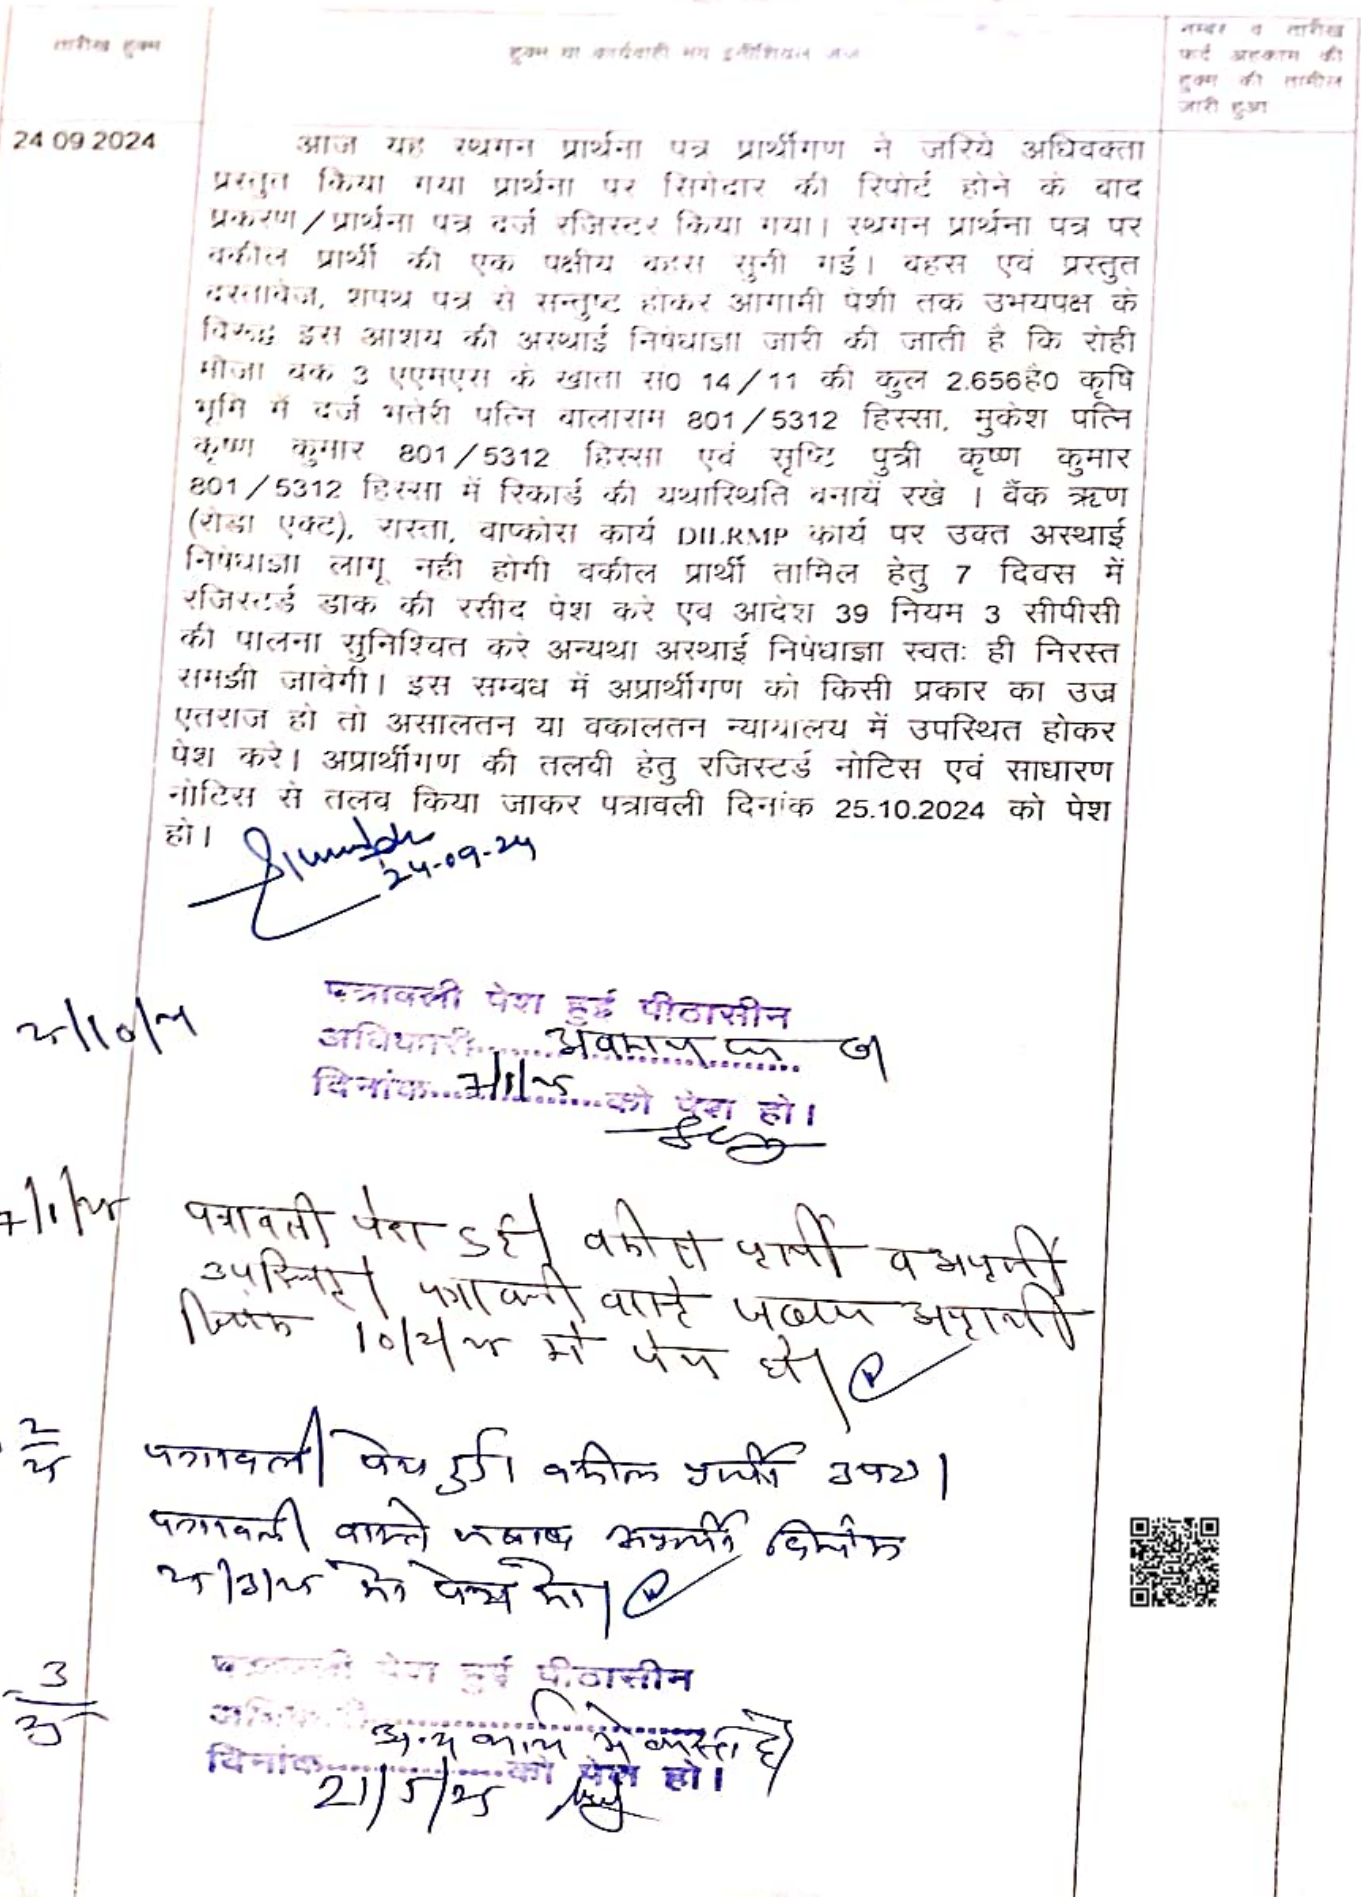 तारीख हुक्म
हुक्म या कार्यवाही मय इनीशियल जज
नम्बर व तारीख
फर्द अहकाम की
हुक्म की तामील
जारी हुआ
24 09 2024
आज यह स्थगन प्रार्थना पत्र प्रार्थीगण ने जरिये अधिवक्ता
प्रस्तुत किया गया प्रार्थना पर सिगेदार की रिपोर्ट होने के बाद
प्रकरण/प्रार्थना पत्र दर्ज रजिस्टर किया गया। स्थगन प्रार्थना पत्र पर
वकील प्रार्थी की एक पक्षीय बहस सुनी गई। बहस एवं प्रस्तुत
दस्तावेज, शपथ पत्र से सन्तुष्ट होकर आगामी पेशी तक उभयपक्ष के
विरूद्ध इस आशय की अस्थाई निषेधाज्ञा जारी की जाती है कि रोही
मौजा चक 3 एएमएस के खाता स0 14/11 की कुल 2.656है0 कृषि
भूमि में दर्ज भतेरी पत्नि बालाराम 801/5312 हिस्सा, मुकेश पत्नि
कृष्ण कुमार 801/5312 हिस्सा एवं सृष्टि पुत्री कृष्ण कुमार
801/5312 हिस्सा में रिकार्ड की यथास्थिति बनायें रखे । बैंक ऋण
(रोडा एक्ट), रास्ता, वाष्कोरा कार्य DILRMP कार्य पर उक्त अस्थाई
निषेधाज्ञा लागू नही होगी वकील प्रार्थी तामिल हेतु 7 दिवस में
रजिस्टर्ड डाक की रसीद पेश करे एव आदेश 39 नियम 3 सीपीसी
की पालना सुनिश्चित करे अन्यथा अस्थाई निषेधाज्ञा स्वतः ही निरस्त
समझी जावेगी। इस सम्बध में अप्रार्थीगण को किसी प्रकार का उज्र
एतराज हो तो असालतन या वकालतन न्यायालय में उपस्थित होकर
पेश करे। अप्रार्थीगण की तलबी हेतु रजिस्टर्ड नोटिस एवं साधारण
नोटिस से तलब किया जाकर पत्रावली दिनांक 25.10.2024 को पेश
हो।
24-09-24
25/10/24
पत्रावली पेश हुई पीठासीन
अधिकारी.......अवकाश पर
दिनांक...7/1/25...को पेश हो।
7/1/25
पत्रावली पेश हुई। वकील प्रार्थी व अप्रार्थी
उपस्थित। पत्रावली वास्ते जवाब अप्रार्थी
दिनांक 10/2/25 को पेश हो।
2
25
पत्रावली पेश हुई। वकील प्रार्थी उप0।
पत्रावली वास्ते जवाब अप्रार्थी दिनांक
25/3/25 को पेश हो।
3
25
पत्रावली पेश हुई पीठासीन
अधिकारी अन्य कार्य में व्यस्त है
दिनांक...........को पेश हो।
21/5/25